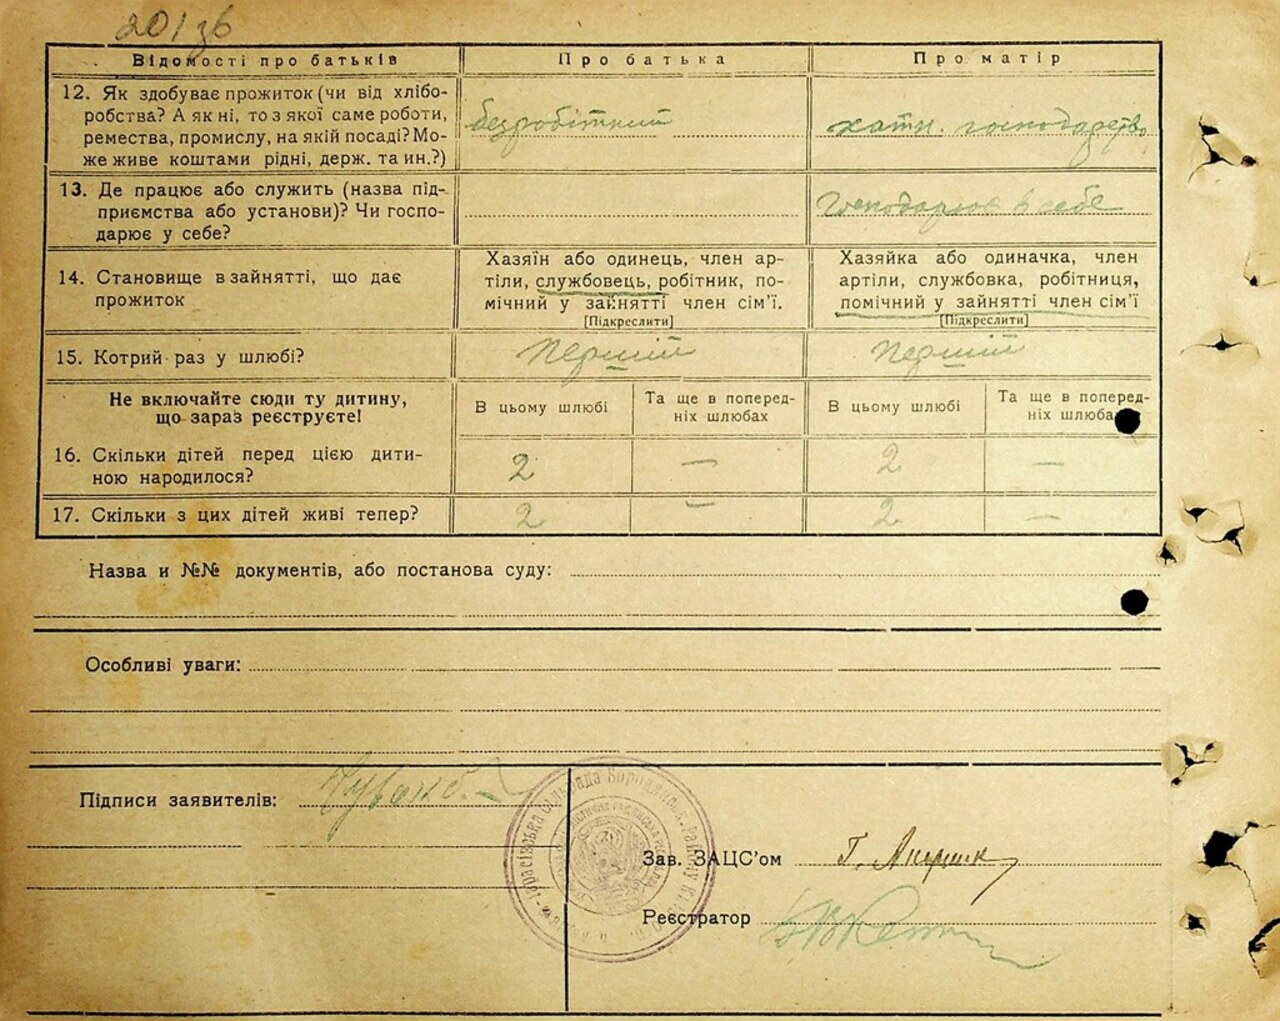 20/зб
Відомості про батьків Про батька Про матір
12. Як здобуває прожиток (чи від хлібо-
робства? А як ні, то з якої саме роботи,
ремества, промислу, на якій посаді? Мо-
же живе коштами рідні, держ. та ин.?)
безробітний
хатн. господарство
13. Де працює або служить (назва під-
приємства або установи)? Чи госпо-
дарює у себе?
Господарює в себе
14. Становище в зайнятті, що дає
прожиток
Хазяїн або одинець, член ар-
тіли, службовець, робітник, по-
мічний у зайнятті член сім’ї.
[Підкреслити]
Хазяйка або одиначка, член
артіли, службовка, робітниця,
помічний у зайнятті член сім’ї
[Підкреслити]
15. Котрий раз у шлюбі? Перший Перший
Не включайте сюди ту дитину,
що зараз реєструєте!
В цьому шлюбі
Та ще в поперед-
ніх шлюбах
В цьому шлюбі
Та ще в поперед-
ніх шлюбах
16. Скільки дітей перед цією дити-
ною народилося?
2 — 2 —
17. Скільки з цих дітей живі тепер? 2 — 2 —
Назва и №№ документів, або постанова суду:
Особливі уваги:
Підписи заявителів:
Зав. ЗАЦС’ом
Реєстратор